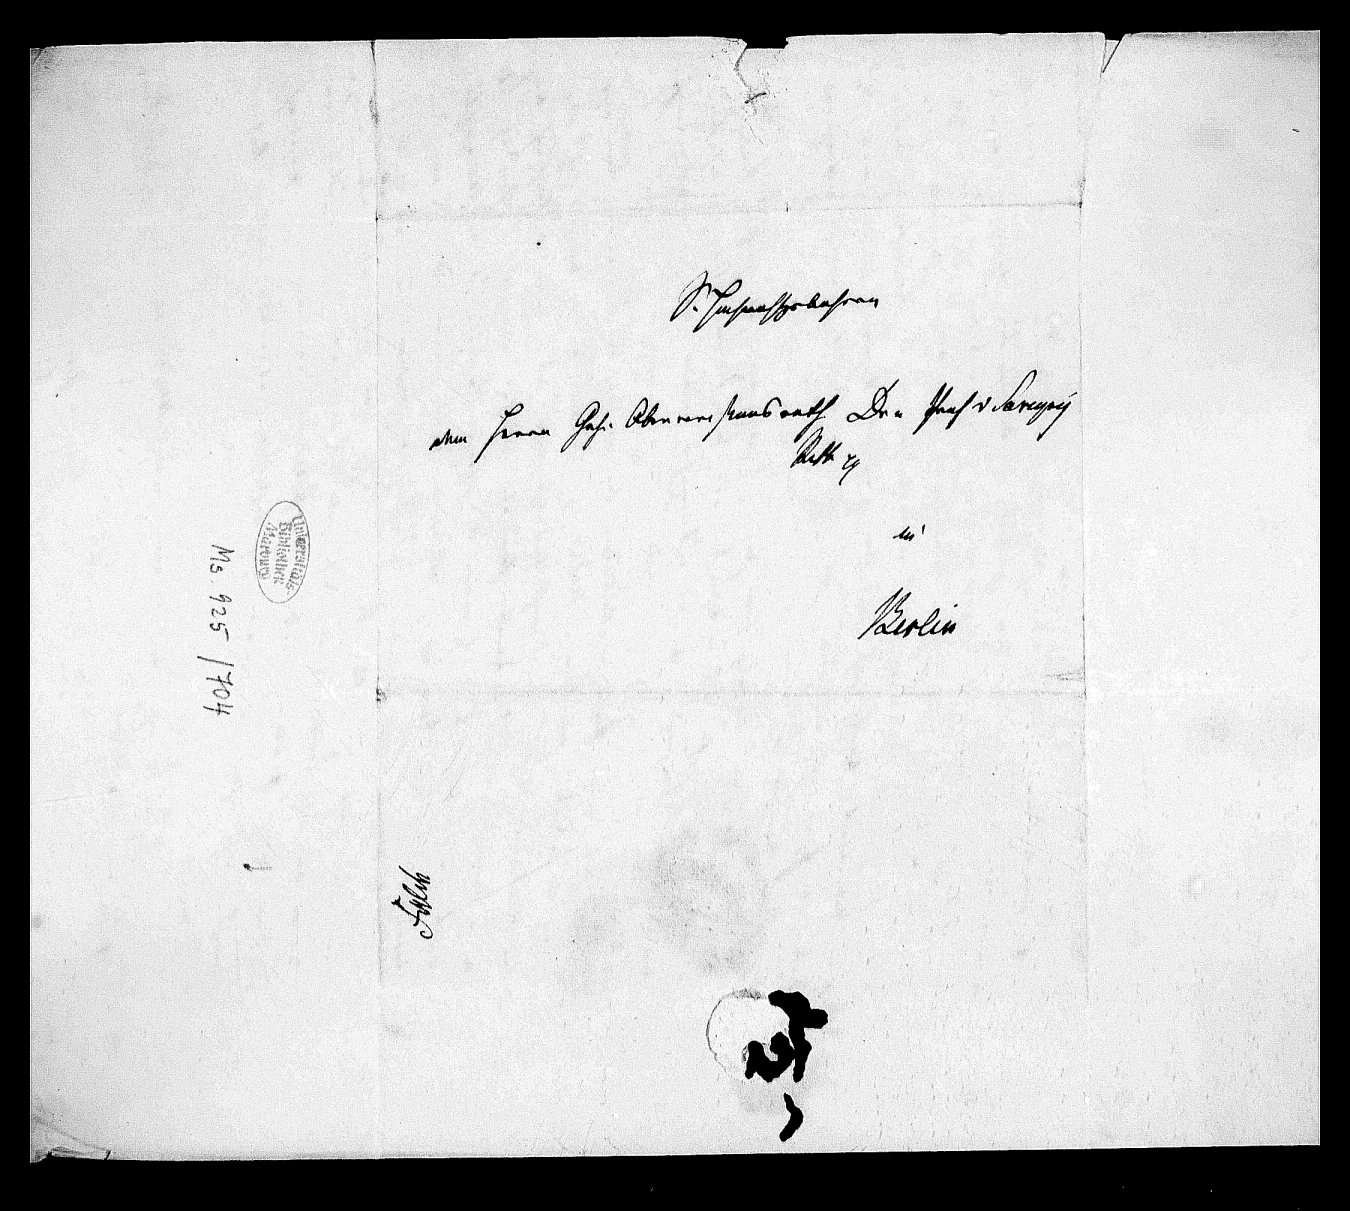 S. Hochwohlgebohren
dem Herrn Geh. Oberrevisionsrath Dr. u Prof v Savigny
Ritter
in
Berlin
Universitäts-
Bibliothek
Marburg
Ms. 925/704